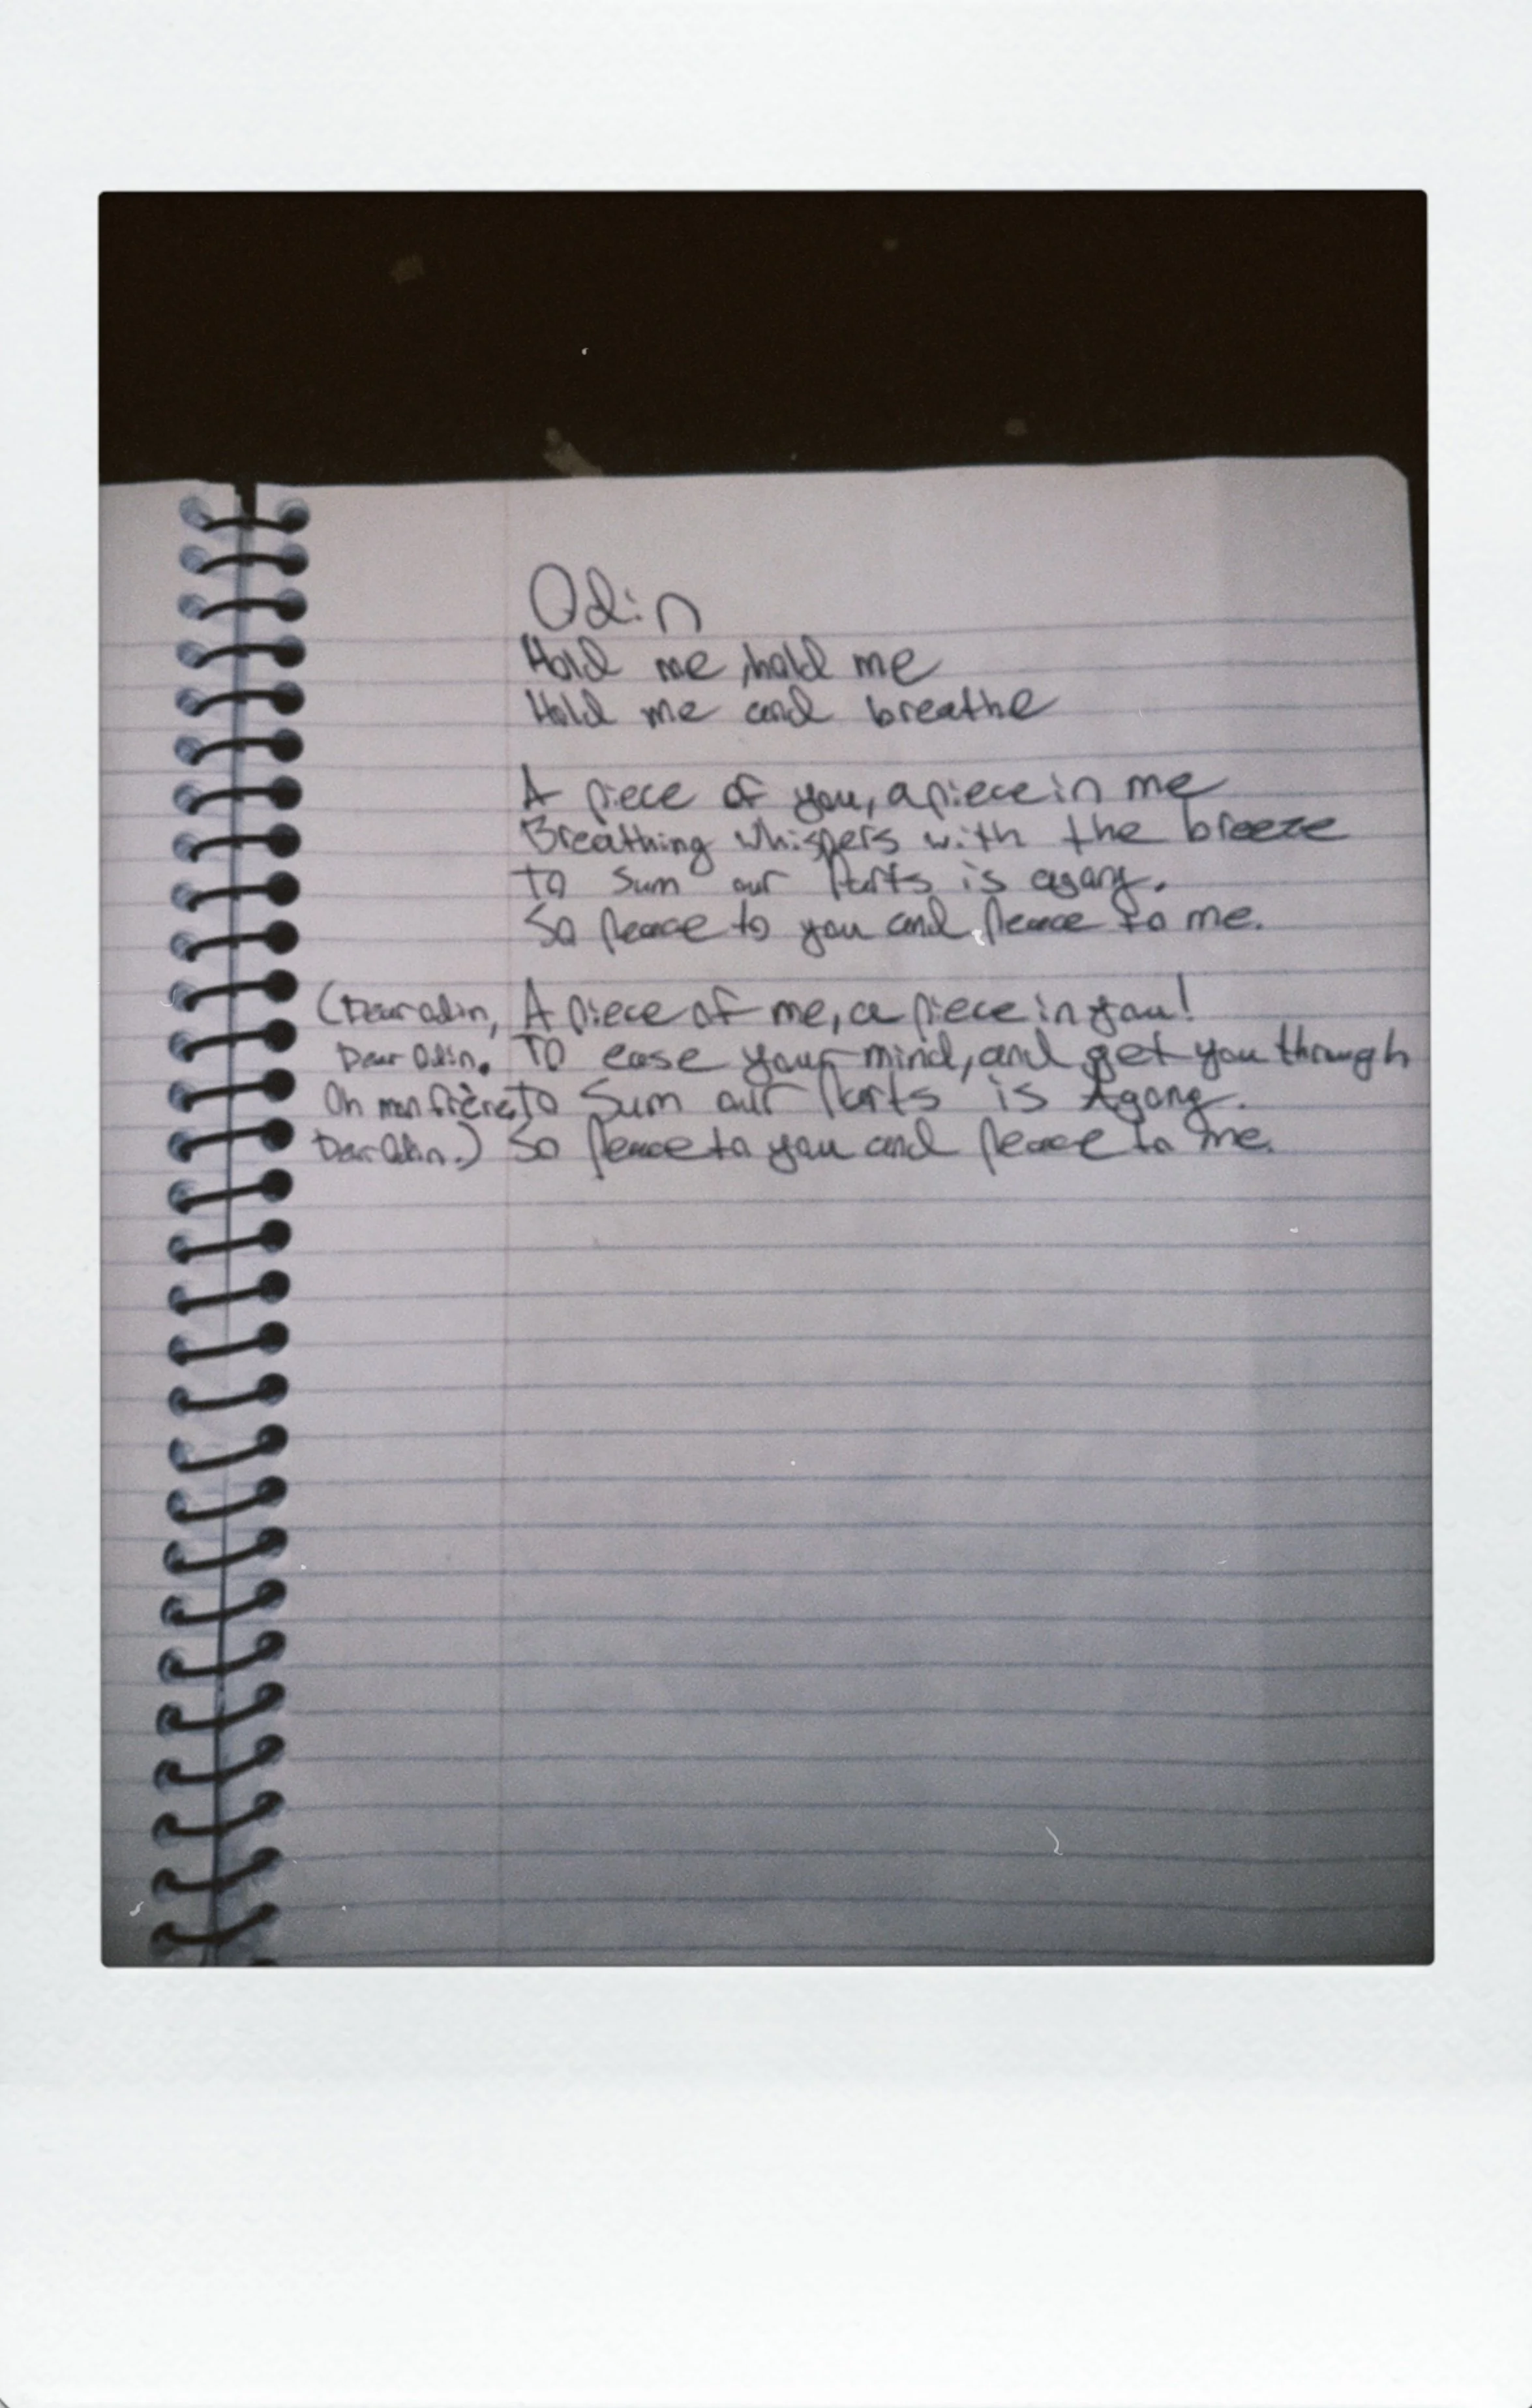 Odin
Hold me, hold me
Hold me and breathe
A piece of you, a piece in me
Breathing whispers with the breeze
To sum our parts is agany.
So peace to you and peace to me.
(Dear Odin, A piece of me, a piece in you!
Dear Odin. To ease your mind, and get you through
Oh mon frère, To sum our parts is Agony.
Dear Odin.) So peace to you and peace to me.